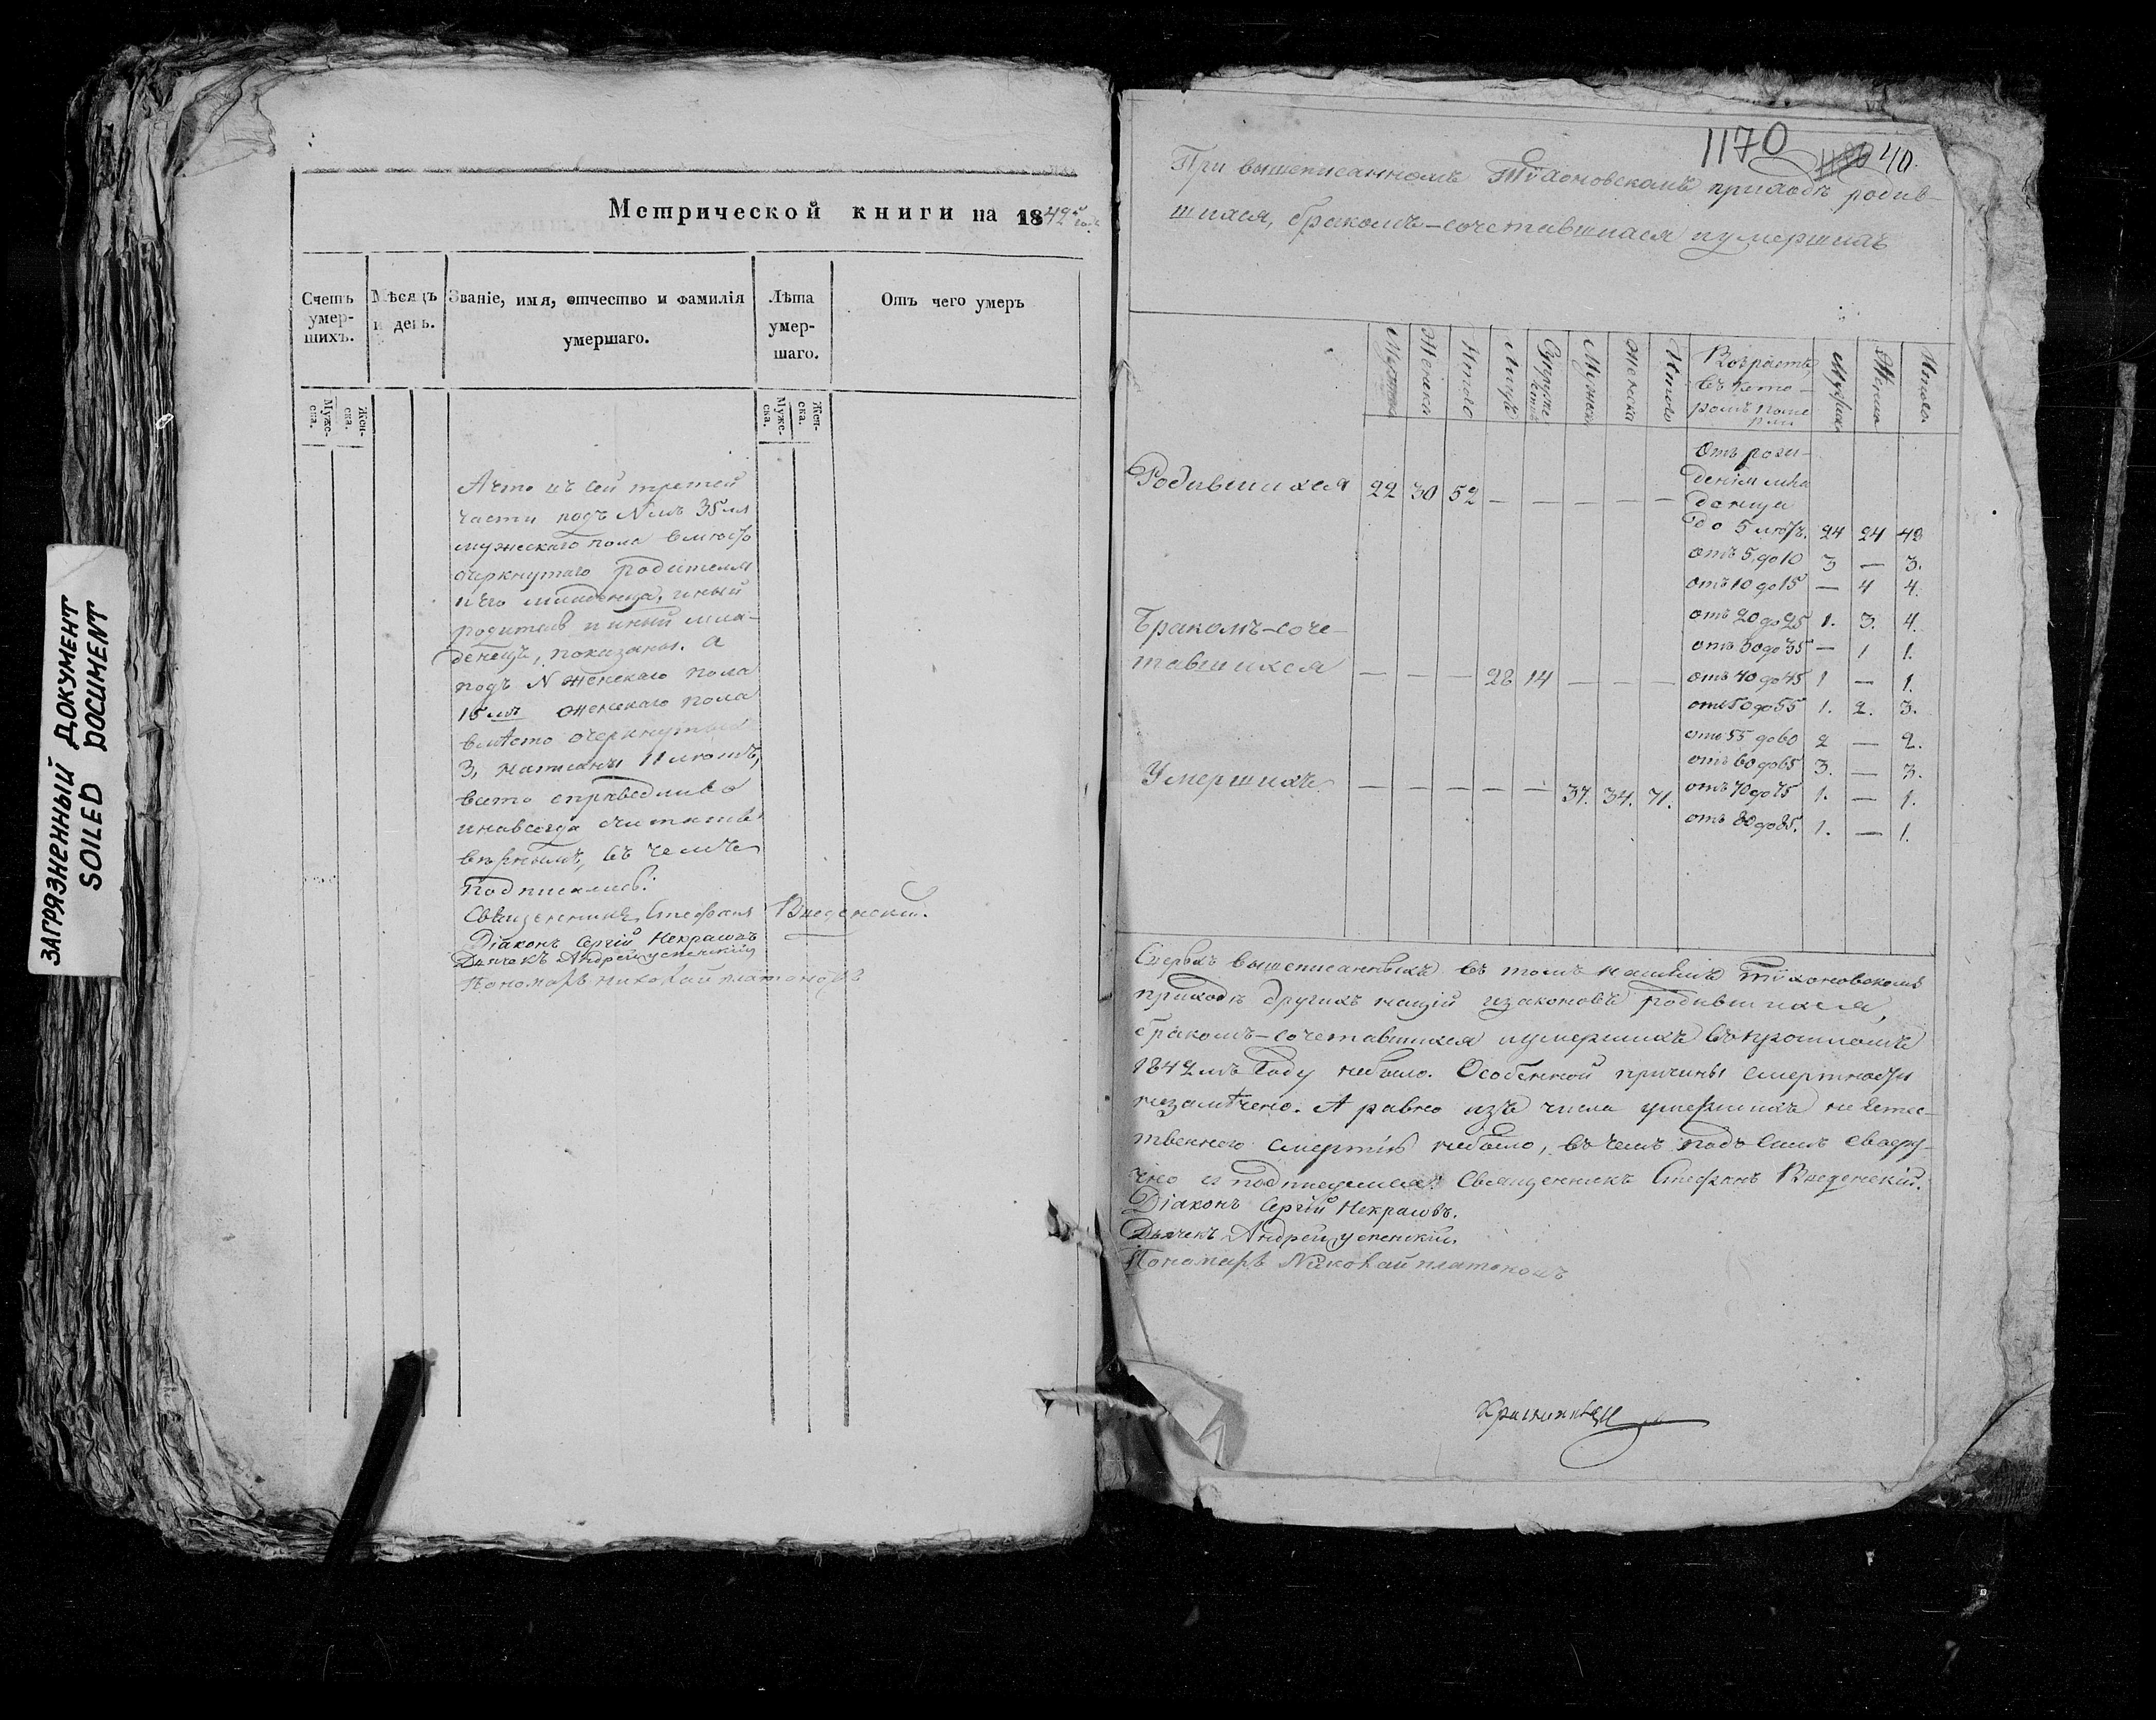 ЗАГРЯЗНЕННЫЙ ДОКУМЕНТ
SOILED DOCUMENT
Метрической книги на 1842й года
Счетъ умер-шихъ.
Мѣсяцъ и день.
Званіе, имя, отчество и фамилія умершаго.
Лѣта умер-шаго.
Отъ чего умеръ
Муже-ска.
Жен-ска.
Муже-ска.
Жен-ска.
А что въ сей третей
части подъ №мъ 35мъ
мужескаго пола вмюсто
очеркнутаго родителя
и его младенца, иный
родитель и иный мла-
денецъ, показаны. а
подъ № женскаго пола
15мъ женскаго пола
вмѣсто очеркнутыхъ
3, написаны 11 лютъ,
всето справедливо
и навсегда считать
вѣрнымъ, въ чемъ
подписались:
Священникъ Стефанъ Введенскій.
Діаконъ Сергій Некрасовъ
Дьячекъ Андрей успенскій
Пономарь николай платоновъ
1170
40.
При вышеписанномъ Тихоновскомъ приходѣ родив-
шихся, бракомъ-сочетавшихся и умершихъ
Мужска Женска Итого Лицъ Супружествъ Мужеска Женска Итого Возрастъ въ кото-ромъ поме-рли Мужска Женска Итого.
Родившихся 22 30 52 — — — — —
Отъ рож-
денія мла
денца
до 5 лютъ. 24 24 48
отъ 5 до 10 3 — 3.
отъ 10 до 15 — 4 4.
отъ 20 до 25 1. 3. 4.
отъ 30 до 35 — 1 1.
Бракомъ-соче-
тавшихся — — — 28 14 — — —
отъ 40 до 45 1 — 1.
отъ 50 до 55 1. 2. 3.
отъ 55 до 60 2 — 2.
отъ 60 до 65 3. — 3.
Умершихъ. — — — — — 37. 34. 71.
отъ 70 до 75 1. — 1.
отъ 80 до 85. 1. — 1.
Сверхъ вышеписанныхъ въ томъ нашемъ Тихоновскомъ
приходѣ другихъ націй и законовъ родившихся,
бракомъ-сочетавшихся и умершихъ въ прошломъ
1842мъ Году небыло. Особенной причины смертности
незамѣчено. А равно изъ числа умершихъ не естес-
твенного смертію небыло, въ чемъ подъ симъ своеру-
чно и подписуемся: Священникъ Стефанъ Введенскій.
Діаконъ Сергій Некрасовъ.
Дьячекъ Андрей успенскій.
Пономарь Николай платоновъ